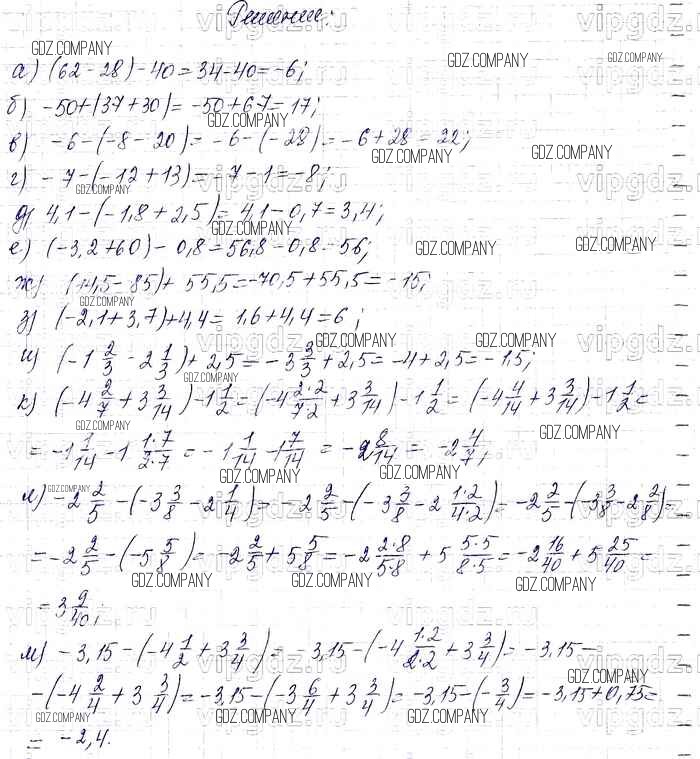 Решение:
а) (62-28)-40=34-40=-6;
б) -50+(37+30)=-50+67=17;
в) -6-(-8-20)=-6-(-28)=-6+28=22;
г) -7-(-12+13)=-7-1=-8;
д) 4,1-(-1,8+2,5)=4,1-0,7=3,4;
е) (-3,2+60)-0,8=56,8-0,8=56;
ж) (14,5-85)+55,5=-70,5+55,5=-15;
з) (-2,1+3,7)+4,4=1,6+4,4=6;
и) (-1 2/3 - 2 1/3)+2,5=-3 3/3+2,5=-4+2,5=-1,5;
к) (-4 2/7 + 3 3/14)-1 1/2=(-4 2·2/7·2 + 3 3/14)-1 1/2=(-4 4/14 + 3 3/14)-1 1/2=
=-1 1/14 - 1 1·7/2·7=-1 1/14 - 1 7/14=-2 8/14=-2 4/7;
л) -2 2/5-(-3 3/8-2 1/4)=-2 2/5-(-3 3/8-2 1·2/4·2)=-2 2/5-(-3 3/8-2 2/8)=
=-2 2/5-(-5 5/8)=-2 2/5+5 5/8=-2 2·8/5·8+5 5·5/8·5=-2 16/40+5 25/40=
=3 9/40;
м) -3,15-(-4 1/2+3 3/4)=-3,15-(-4 1·2/2·2+3 3/4)=-3,15-
-(-4 2/4+3 3/4)=-3,15-(-3 6/4+3 3/4)=-3,15-(-3/4)=-3,15+0,75=
=-2,4.
GDZ.COMPANY
vipgdz.ru